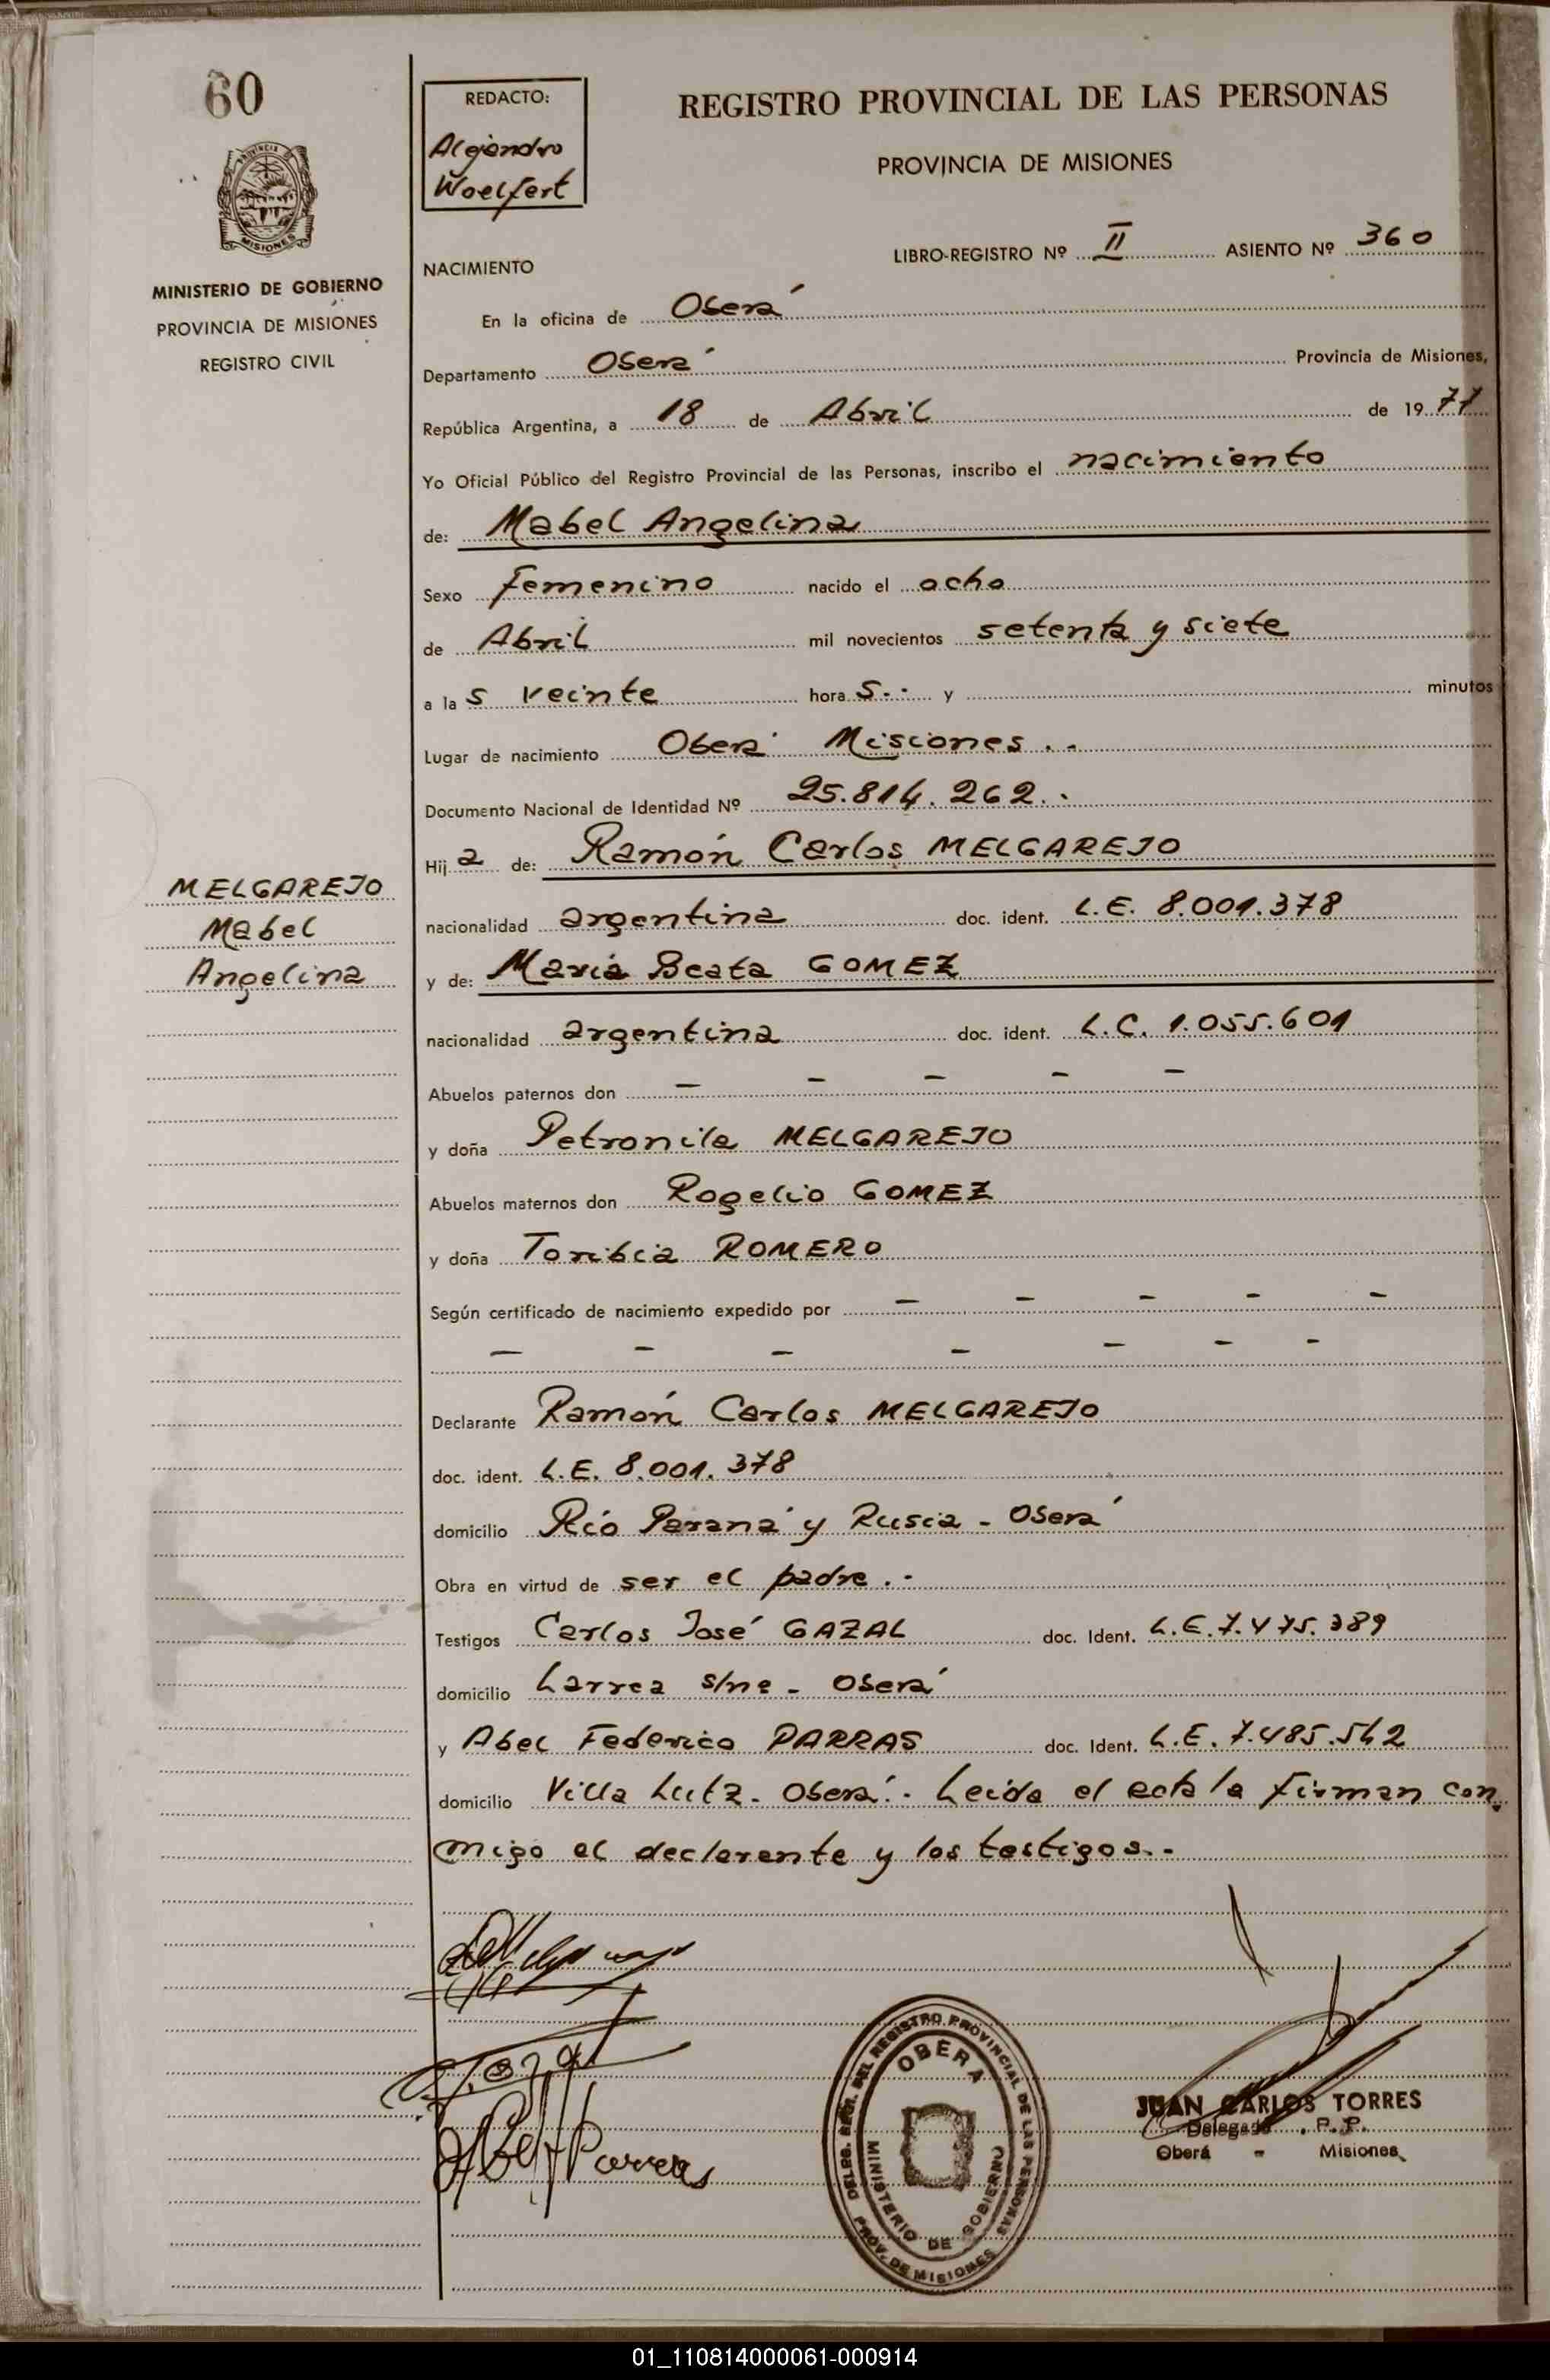 60
REDACTO:
Alejandro
Woelfert
REGISTRO PROVINCIAL DE LAS PERSONAS
PROVINCIA DE MISIONES
PROVINCIA
MISIONES
MINISTERIO DE GOBIERNO
PROVINCIA DE MISIONES
REGISTRO CIVIL
LIBRO-REGISTRO Nº II ASIENTO Nº 360
NACIMIENTO
En la oficina de Oberá
Departamento Oberá Provincia de Misiones,
República Argentina, a 18 de Abril de 1977
Yo Oficial Público del Registro Provincial de las Personas, inscribo el nacimiento
de: Mabel Angelina
Sexo Femenino nacido el ocho
de Abril mil novecientos setenta y siete
a las veinte horas.- y minutos
Lugar de nacimiento Oberá Misiones.-
Documento Nacional de Identidad Nº 25.814.262.-
Hija de: Ramón Carlos MELGAREJO
MELGAREJO
Mabel
Angelina
nacionalidad argentina doc. ident. L.E. 8.001.378
y de: María Beata GOMEZ
nacionalidad argentina doc. ident. L.C. 1.055.601
Abuelos paternos don – – – – –
y doña Petronila MELGAREJO
Abuelos maternos don Rogelio GOMEZ
y doña Toribia ROMERO
Según certificado de nacimiento expedido por – – – – –
– – – – – – –
Declarante Ramón Carlos MELGAREJO
doc. ident. L.E. 8.001.378
domicilio Río Paraná y Rusia - Oberá
Obra en virtud de ser el padre.-
Testigos Carlos José GAZAL doc. Ident. L.E. 7.475.389
domicilio Larrea s/nº - Oberá
y Abel Federico PARRAS doc. Ident. L.E. 7.485.542
domicilio Villa Lutz - Oberá.- Leida el acta la firman con
migo el declarante y los testigos.-
Abel F Parras
DELEG. REGI. DEL REGISTRO PROVINCIAL DE LAS PERSONAS
OBERA
MINISTERIO DE GOBIERNO
PROV. DE MISIONES
JUAN CARLOS TORRES
Delegado R. P. P.
Oberá - Misiones
01_110814000061-000914